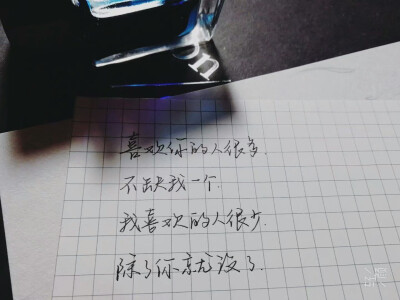 喜欢你的人很多.
不缺我一个.
我喜欢的人很少.
除了你就没了.